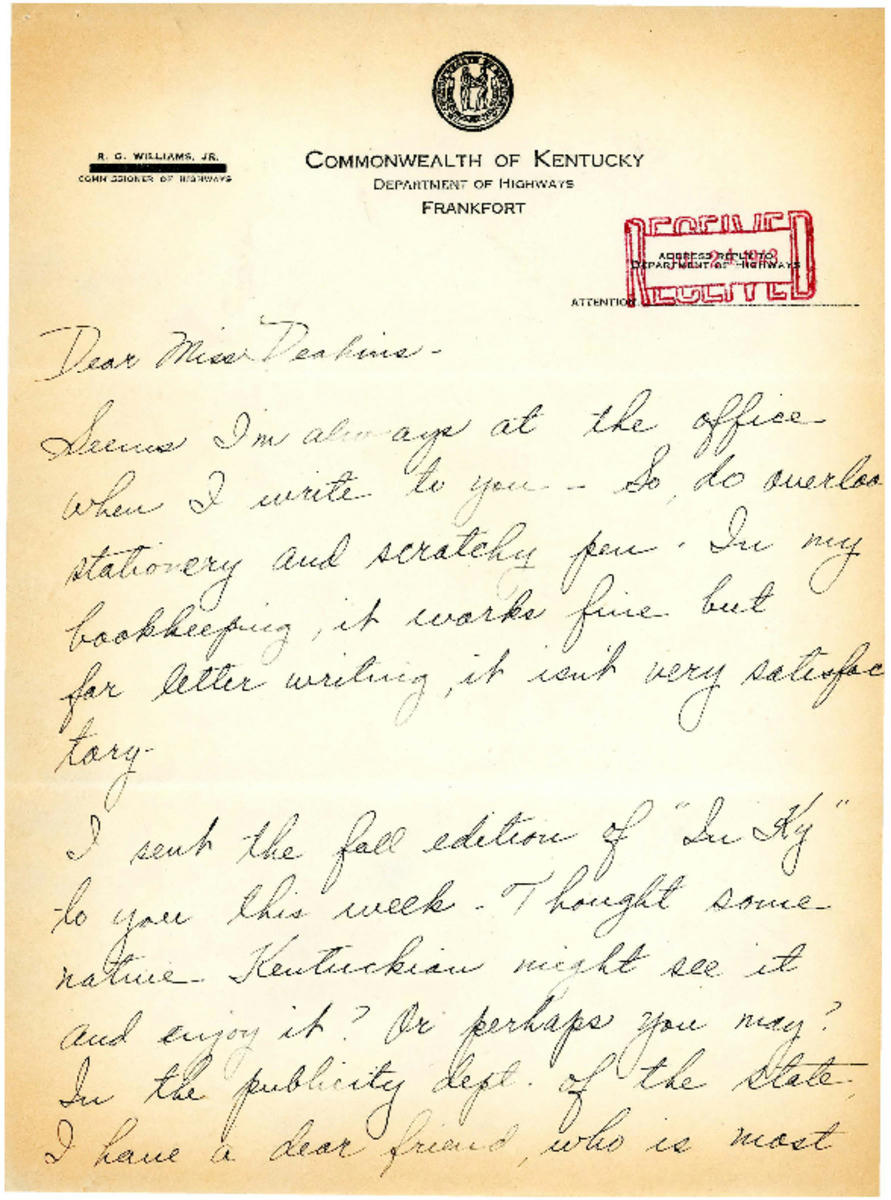 R. G. WILLIAMS, JR.
COMMISSIONER OF HIGHWAYS
COMMONWEALTH OF KENTUCKY
DEPARTMENT OF HIGHWAYS
FRANKFORT
RECEIVED
ADDRESS REPLY TO
DEPARTMENT OF HIGHWAYS
ATTENTION
RECEIVED
Dear Miss Deakins -
Seems I'm always at the office
when I write to you - So, do overloo
stationery and scratchy pen. In my
bookkeeping, it works fine but
for letter writing, it isn't very satisfac
tory -
I sent the fall edition of "In Ky"
to you this week - Thought some
native Kentuckian might see it
and enjoy it? Or perhaps you may?
In the publicity dept. of the state,
I have a dear friend, who is most